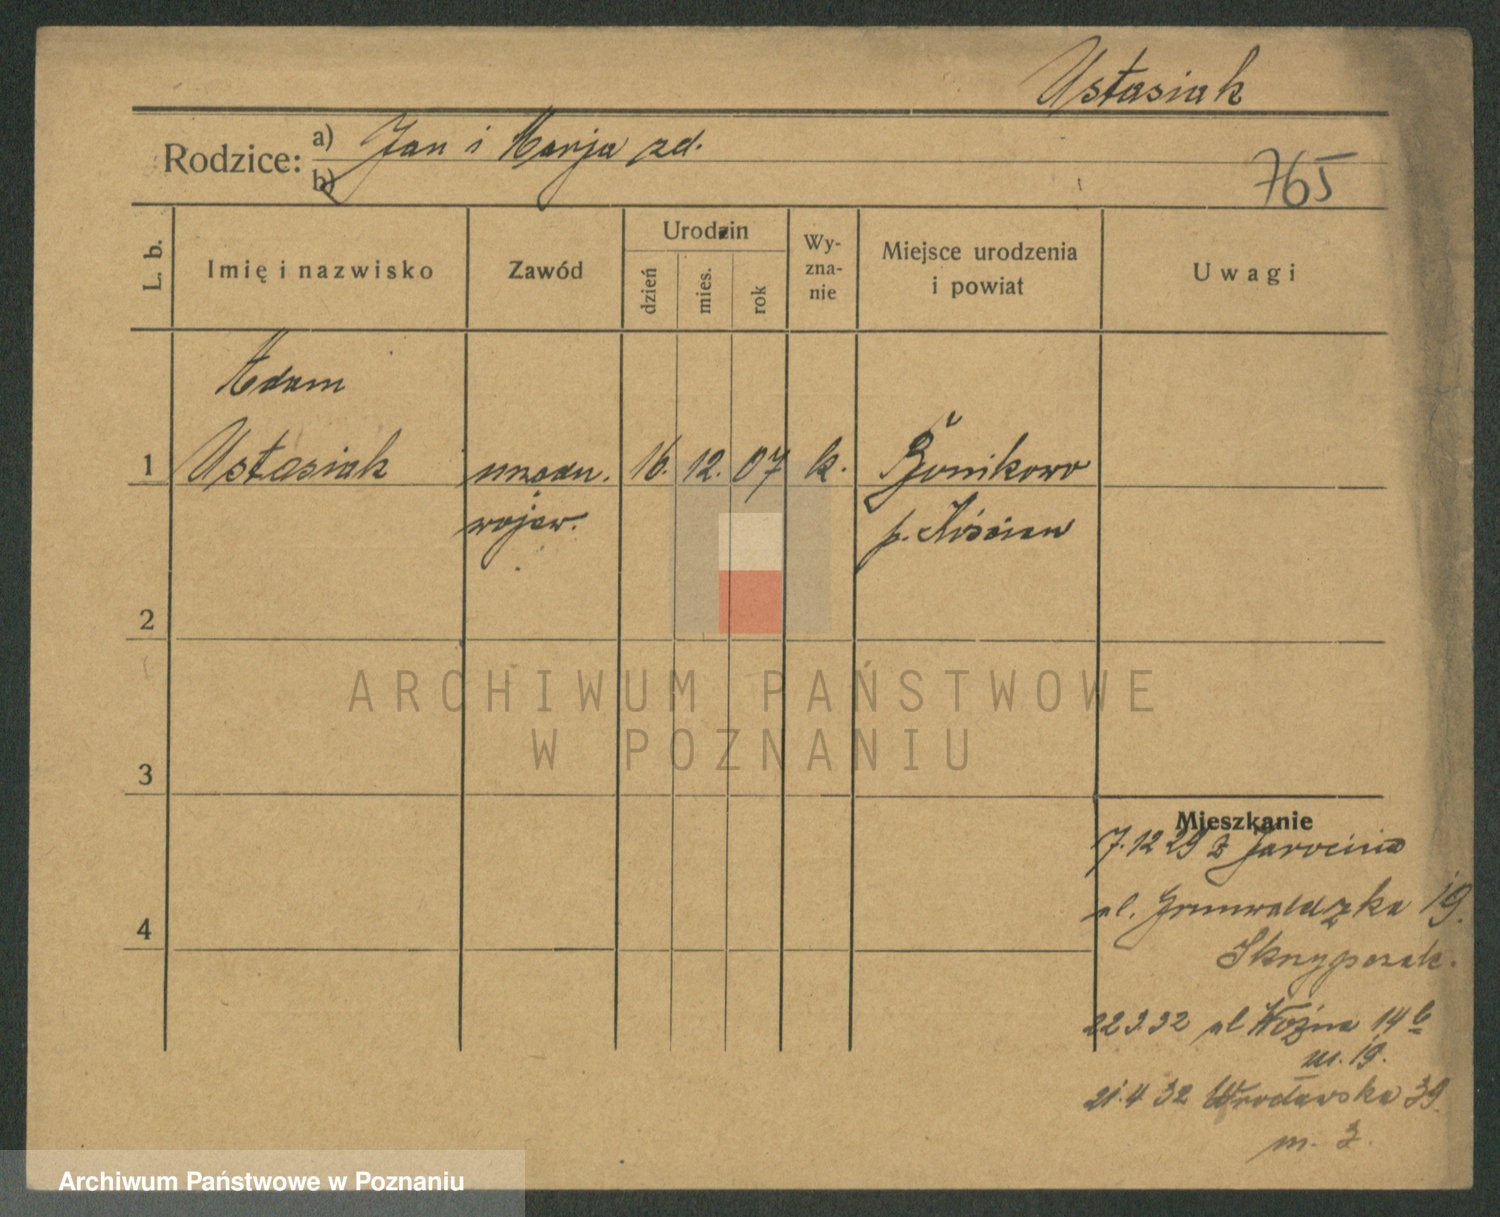 Ustasiak
Rodzice: a) Jan i Marja zd.
b)
765
L. b.
Imię i nazwisko
Zawód
Urodzin
dzień
mies.
rok
Wy-
zna-
nie
Miejsce urodzenia
i powiat
Uwagi
Adam
1 Ustasiak urzędn. 16. 12. 07 k. Bonikowo
wojew. p. Kościan
2
3
4
ARCHIWUM PAŃSTWOWE
W POZNANIU
Mieszkanie
7.12 29 z Jarocina
ul. Grunwaldzka 19.
Skrzypczak.
22 3 32 ul Woźna 14 b
m. 19.
21.4 32 Wrocławska 39.
m. 3.
Archiwum Państwowe w Poznaniu